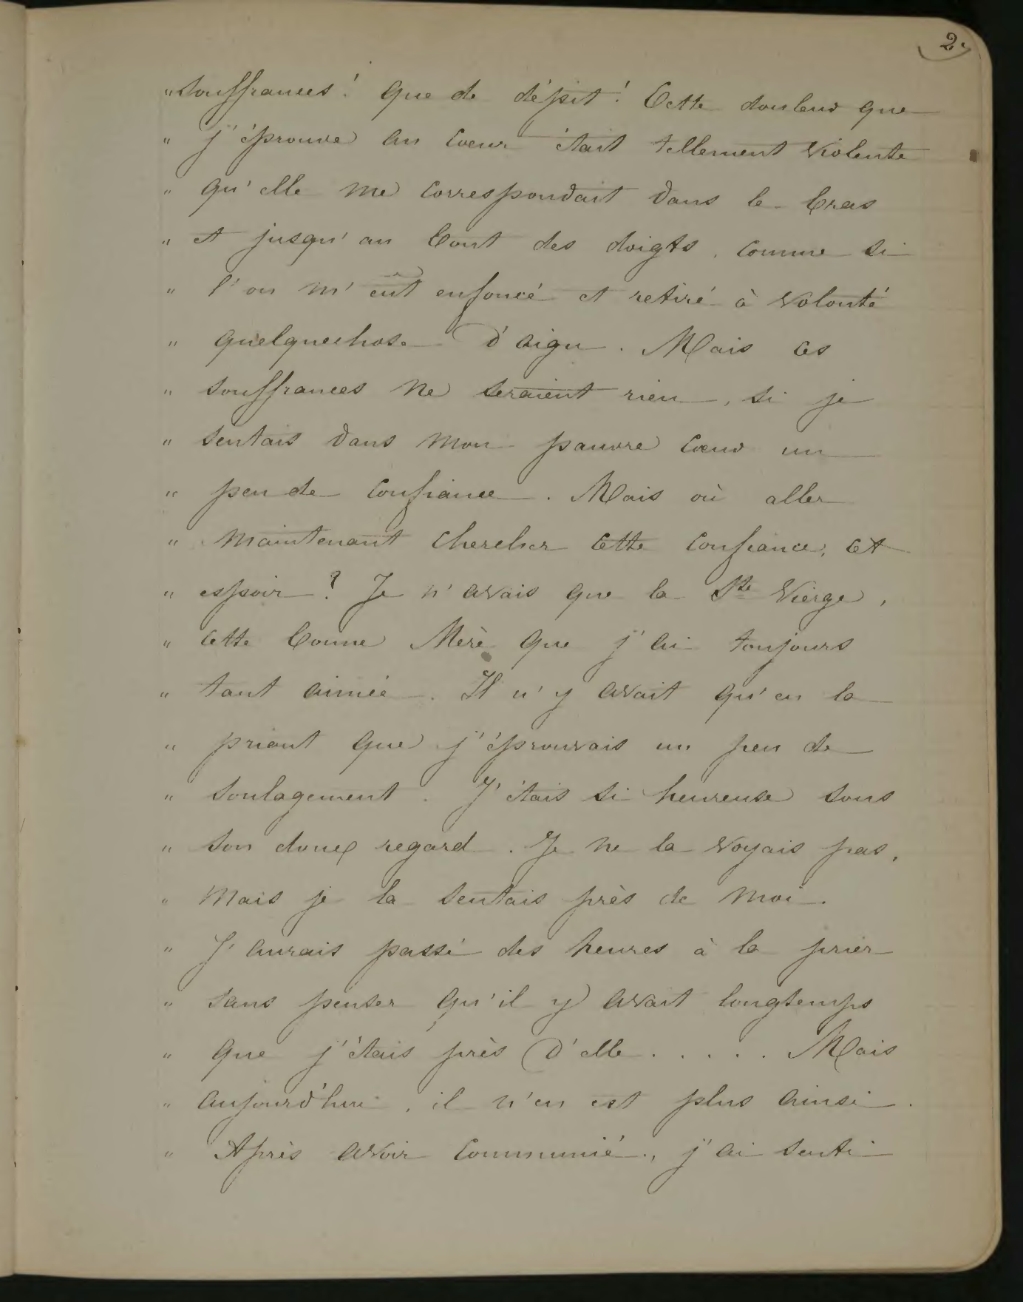 2.
"souffrances ! que de dépit ! Cette douleur que
" j'éprouve au coeur était tellement violente
" qu'elle me correspondait dans le bras
" et jusqu'au bout des doigts, comme si
" l'on m'eût enfoncé et retiré à volonté
" quelquechose d'aigu. Mais ces
" souffrances ne seraient rien, si je
" sentais dans mon pauvre coeur un
" peu de confiance. Mais où aller
" maintenant chercher cette confiance, cet
" espoir ? Je n'avais que la Ste Vierge,
" cette bonne Mère que j'ai toujours
" tant aimée. Il n'y avait qu'en la
" priant que j'éprouvais un peu de
" soulagement. J'étais si heureuse sous
" son doux regard. Je ne la voyais pas,
" mais je la sentais près de moi.
" J'aurais passé des heures à la prier
" sans penser qu'il y avait longtemps
" que j'étais près d'elle . . . . . Mais
" aujourd'hui, il n'en est plus ainsi.
" Après avoir communié, j'ai senti